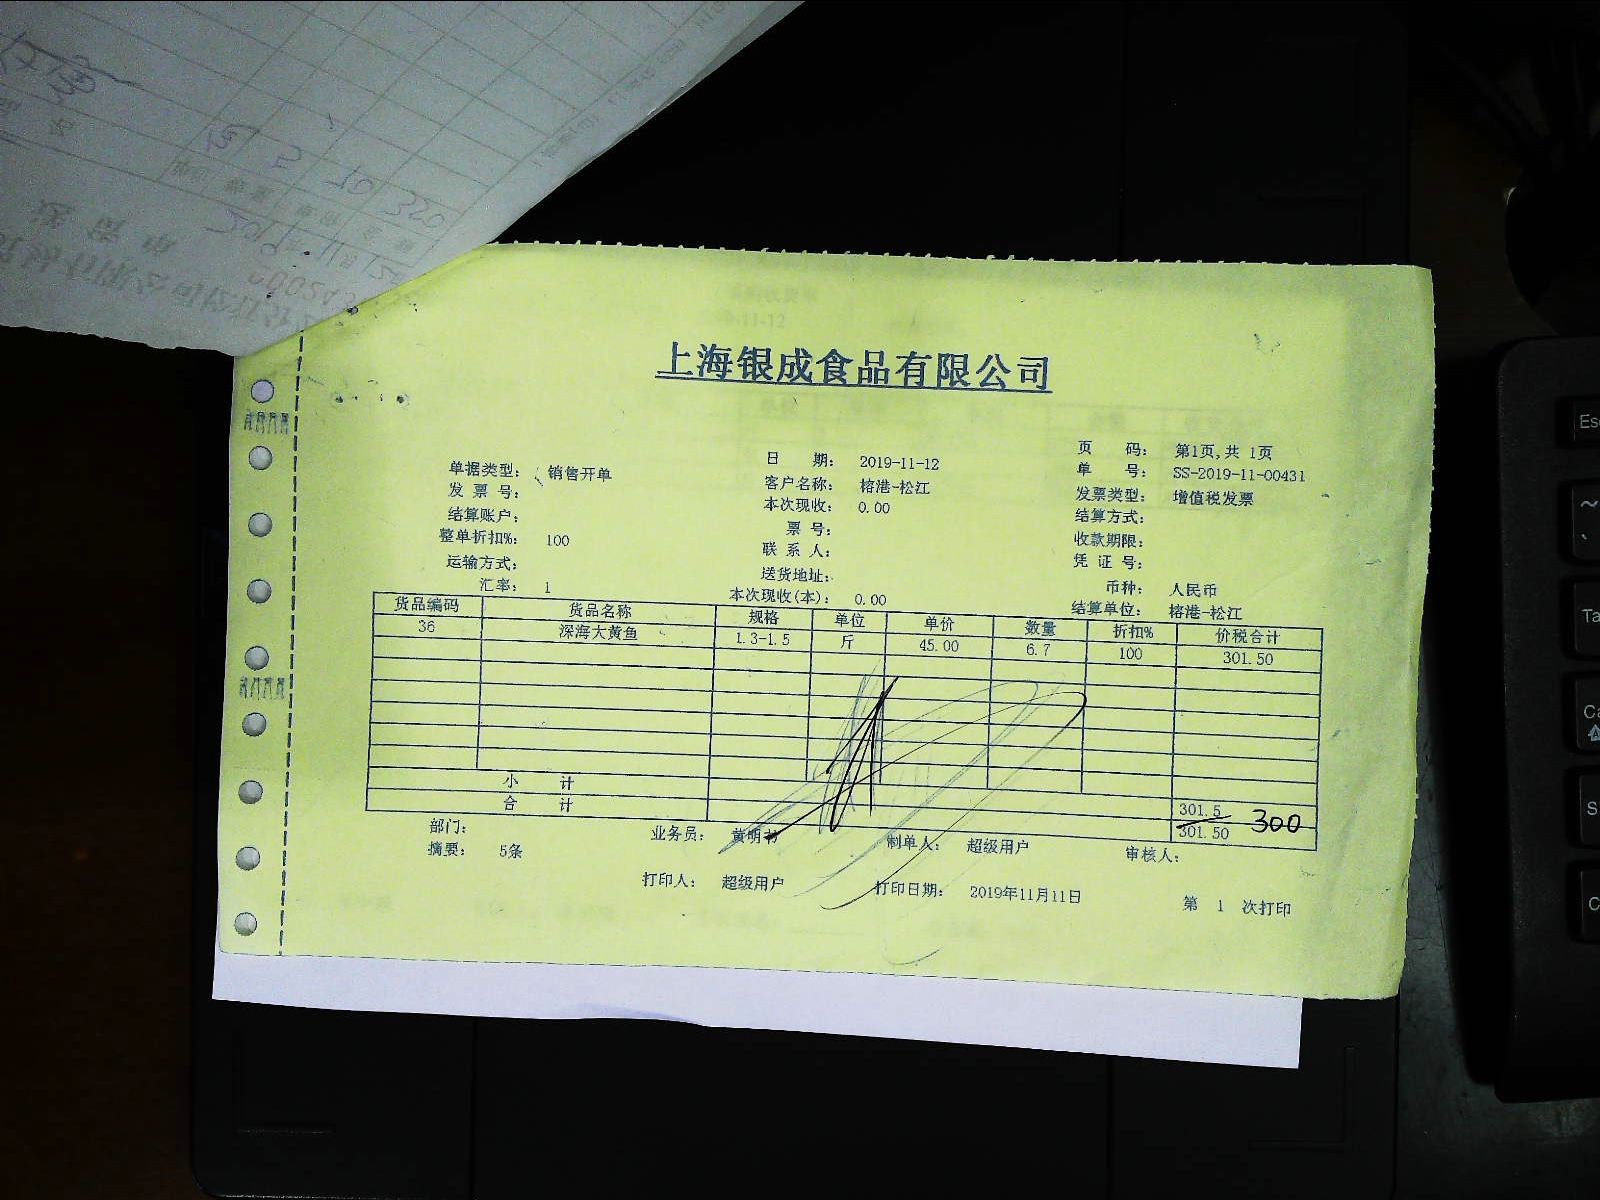 上海银成食品有限公司
页 码： 第1页,共 1页
日 期： 2019-11-12
单据类型： 销售开单
单 号： SS-2019-11-00431
客户名称： 榕港-松江
发 票 号：
发票类型： 增值税发票
本次现收： 0.00
结算账户：
结算方式：
票 号：
整单折扣%： 100
收款期限：
联 系 人：
运输方式：
凭 证 号：
送货地址：
汇率： 1
币种： 人民币
本次现收(本)： 0.00
结算单位： 榕港-松江
货品编码 货品名称 规格 单位 单价 数量 折扣% 价税合计
36 深海大黄鱼 1.3-1.5 斤 45.00 6.7 100 301.50
小 计 301.5
合 计 301.50 300
部门： 业务员： 黄明 制单人： 超级用户 审核人：
摘要： 5条
打印人： 超级用户 打印日期： 2019年11月11日 第 1 次打印
320
Esc
~
Ta
Ca
S
C